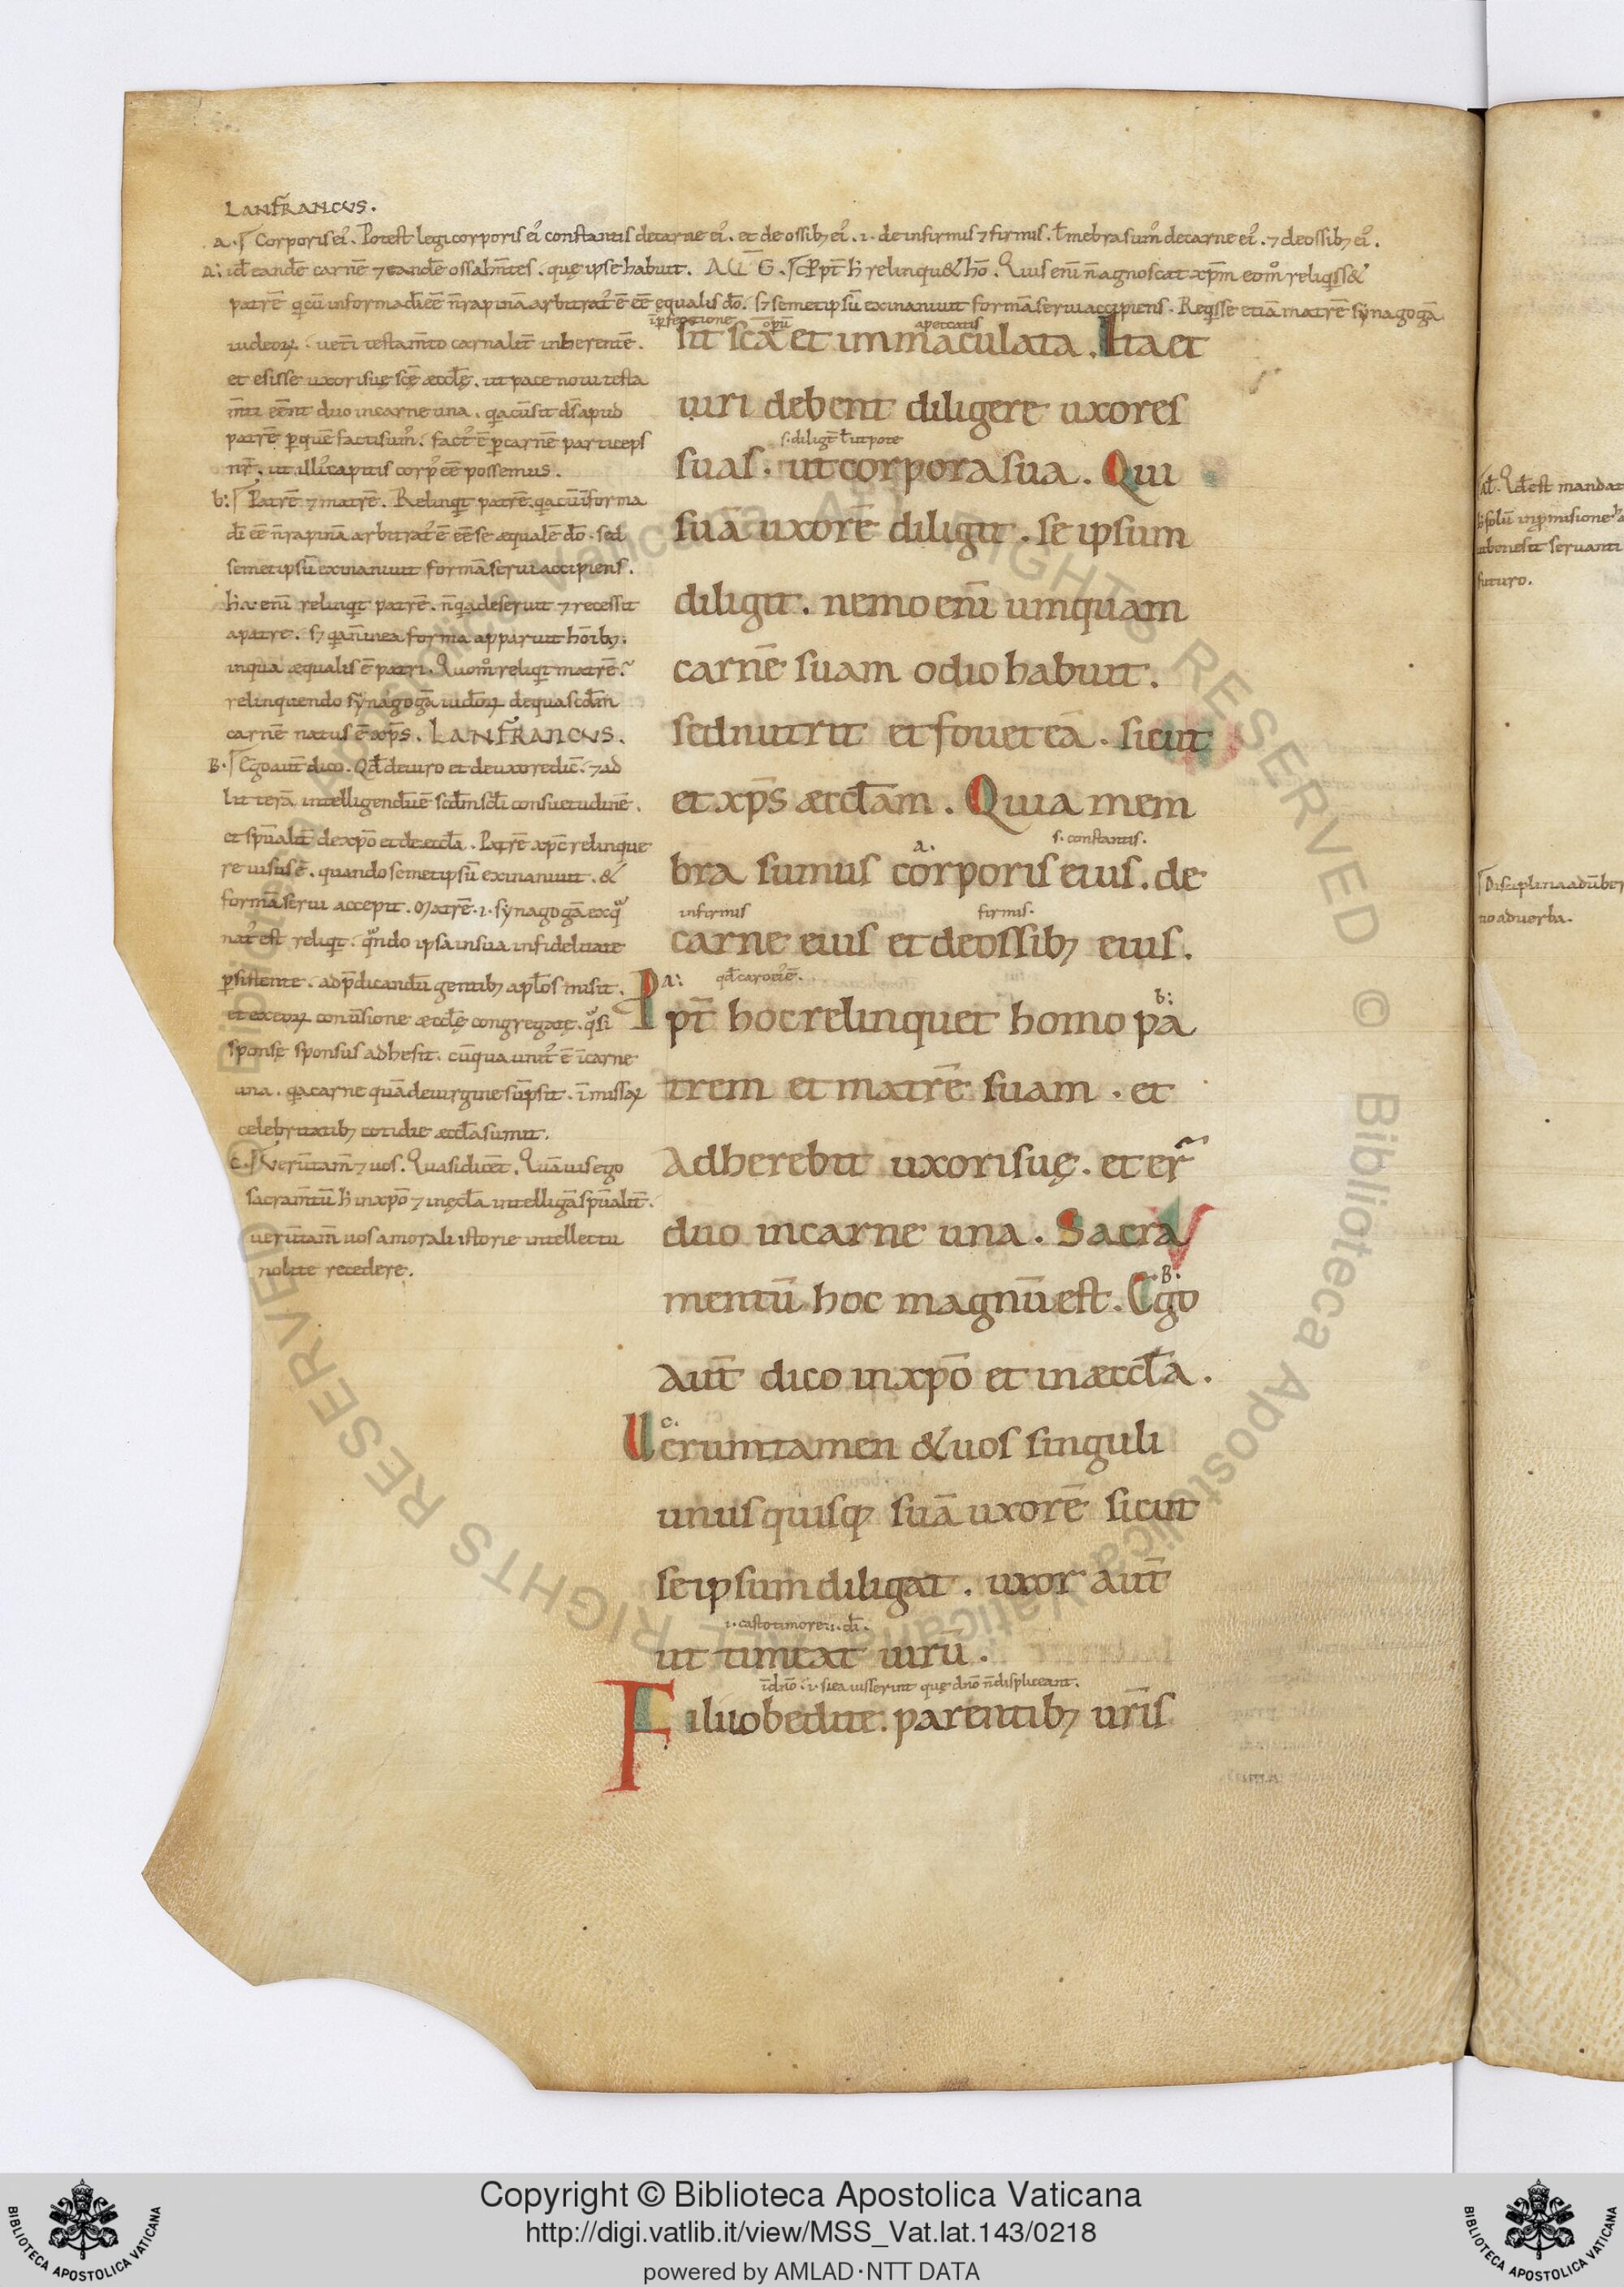 LANFRANCUS.
a. Corporis ei᾽. Potest legi corporis ei᾽ constantis de carne ei᾽. et de ossib; ei᾽. .i. de infirmis ⁊ firmis. ł mēbra sum᾽ de carne ei᾽. ⁊ de ossib; ei᾽.
A: id̄ eandē carnē ⁊ eandē ossa hn̄tes. quę ipse habuit. AUḠ. Ppt̄ h̄ relinqu& hō. Quis enī n̄ agnoscat xp̄m eom̊ reliq̇ss&
patrē q̇ cū in forma dī eē n̄ rapinā arbitrat᾽ ē eē ęqualis dō. s; semetipsū exinaniuit formā serui accipiens. Reliq̇sse etiā matrē synagogā
iudeoꝝ. uet̄i testam̄to carnalit̄ inherentē.
et esisse uxori suę scę̄ æccłę. ut pace noui testa
m̄ti eēnt duo in carne una. q̇a cū sit ds̄ apud
patrē p̱ quē facti sum᾽. fact᾽ ē p̱ carnē particeps
nr̄. ut illi᾽ capitis corp᾽ eē possemus.
b: Patrē ⁊ matrē. Relinq̇t patrē. q̇a cū ī forma
dī eē n̄ rapinā arbitrat᾽ ē eē se æqualē dō. sed
semetipsū exinaniuit formā serui accipiens.
h̄ ē enī relinq̇t patrē. n̄ q̇a deseruit ⁊ recessit
a patre. s; q̇a n̄ in ea forma apparuit hōib;.
in qua æqualis ē patri. Quom̊ reliq̇t matrē?
relinquendo synagogā iudeoꝝ de qua scd̄m
carnē natus ē xp̄s. LANFRANCUS.
B. Ego aut̄ dico. Qd̄ de uiro et de uxore dic̄. ⁊ ad
litterā intelligendū ē scd̄m scłi consuetudinē.
et sp̄ualit̄ de xp̄o et de eccła. Patrē xp̄c relinque
re uisus ē. quando semetipsū exinaniuit. &
formā serui accepit. Matrē .i. synagogā ex q̊
nat᾽ est reliq̇t. q̊ndo ipsa in sua infidelitate
p̱sistente. ad p̄dicandū gentib; apłos misit.
et ex eoꝝ conūsione æccłę congregatę. q̊si
sponsę sponsus adhesit. cū qua unit᾽ ē ī carne
una. q̇a carne quā de uirgine sūpsit. ī missaꝝ
celebritatib; cotidie æccła sumit.
C. Verūtam̄ ⁊ uos. Quasi dicēt. Quāuis ego
sacram̄tū h̄ in xp̄o ⁊ in ęccła intelligā sp̄ualit̄.
uerūtam̄ uos a morali istorię intellectu
nolite recedere.
ī p̱fectione op̱ū a peccatis
sit scā et immaculata. Ita et
uiri debent diligere uxores
s. diligēt ł ut pote
suas. ut corpora sua. Qui
suā uxorē diligit. se ipsum
diligit. nemo enī umquam
carnē suam odio habuit.
sed nutrit et fouet eā. sicut
et xp̄s æccłam. Quia mem
a. s. constantis.
bra sumus corporis eius. de
infirmis firmis.
carne eius et de ossib; eius.
A: qd̄ caro ei᾽ ē. b:
Ppt̄ hoc relinquet homo pa
trem et matrē suam. et
adherebit uxori suę. et er̄
duo in carne una. Sacra
B:
mentū hoc magnū est. Ego
aut̄ dico in xp̄o et in æccła.
c.
Verumtamen & uos singuli
unusquisq; suā uxorē sicut
se ipsum diligat. uxor aut̄
.i. casto timore .i. dī.
ut timeat uirū.
ī dn̄o .i. si ea iusserint quę dn̄o n̄ displiceant.
Filii obedite parentib; ur̄is
qd̄. Qd̄ est mandat
futuro.
Disciplina ad ūber
no ad uerba.
Copyright © Biblioteca Apostolica Vaticana
http://digi.vatlib.it/view/MSS_Vat.lat.143/0218
powered by AMLAD·NTT DATA
BIBLIOTECA APOSTOLICA VATICANA
BIBLIOTECA APOSTOLICA VATICANA